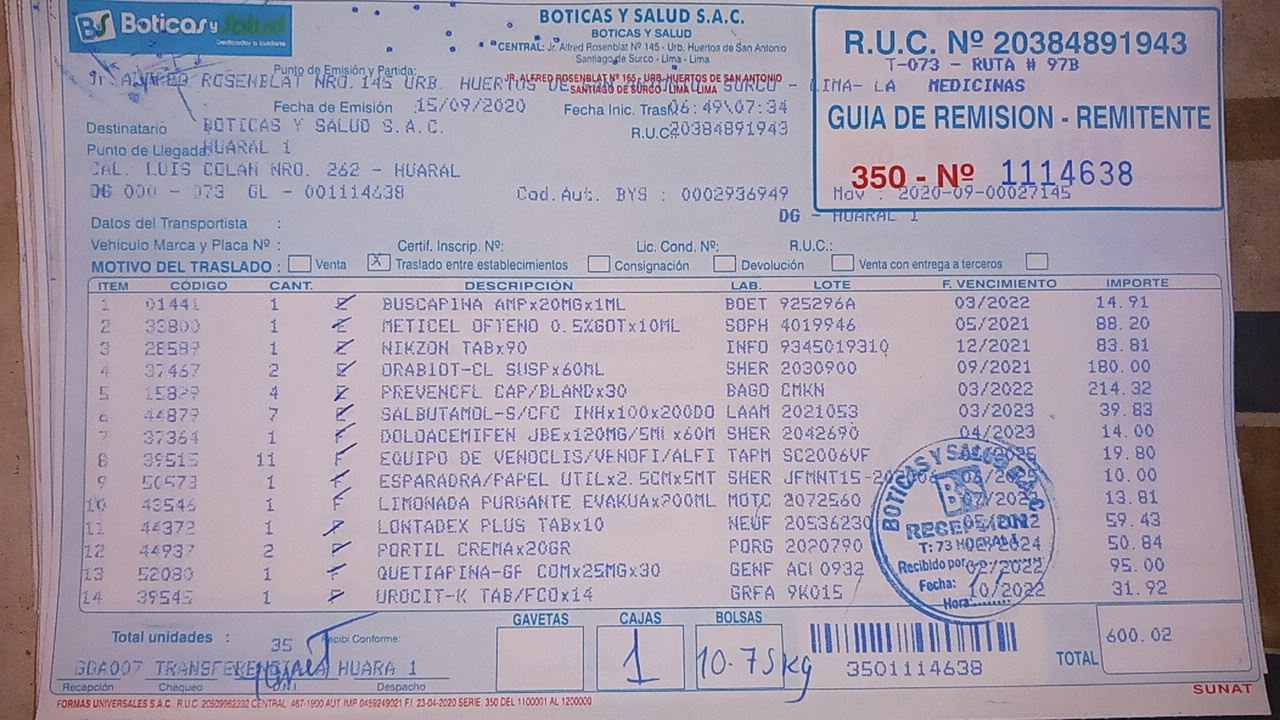 Boticas y Salud
Dedicados a cuidarte
BOTICAS Y SALUD S.A.C.
BOTICAS Y SALUD
CENTRAL: Jr. Alfred Rosenblat Nº 145 - Urb. Huertos de San Antonio
Santiago de Surco - Lima - Lima
R.U.C. Nº 20384891943
T-073 - RUTA # 97B
MEDICINAS
GUIA DE REMISION - REMITENTE
350 - Nº 1114638
Nov : 2020-09-00027145
DG - HUARAL 1
Punto de Emisión y Partida:
JR. ALFRED ROSENBLAT Nº 165 - URB. HUERTOS DE SAN ANTONIO
SANTIAGO DE SURCO - LIMA - LIMA
ALFRED ROSENBLAT NRO.145 URB. HUERTOS DE SURCO - LIMA- LA
Fecha de Emisión :15/09/2020 Fecha Inic. Tras 06:49\07:34
Destinatario BOTICAS Y SALUD S.A.C. R.U.C. 20384891943
Punto de Llegada: HUARAL 1
CAL. LUIS COLAN NRO. 262 - HUARAL
DG 000 - 073 GL - 001114638 Cod.Aut. BYS : 0002936949
Datos del Transportista :
Vehículo Marca y Placa Nº : Certif. Inscrip. Nº: Lic. Cond. Nº: R.U.C.:
MOTIVO DEL TRASLADO : Venta X Traslado entre establecimientos Consignación Devolución Venta con entrega a terceros
ITEM CÓDIGO CANT. DESCRIPCIÓN LAB. LOTE F. VENCIMIENTO IMPORTE
1 01441 1 BUSCAPINA AMPx20MGx1ML BOET 925296A 03/2022 14.91
2 33800 1 METICEL OFTENO 0.5%GOTx10ML SOPH 4019946 05/2021 88.20
3 28589 1 NIKZON TABx90 INFO 9345019310 12/2021 83.81
4 37467 2 ORABIOT-CL SUSPx60ML SHER 2030900 09/2021 180.00
5 15829 4 PREVENCEL CAP/BLANDx30 BAGO CMKN 03/2022 214.32
6 44879 7 SALBUTAMOL-S/CFC INHx100x200DO LAAM 2021053 03/2023 39.83
7 37364 1 DOLOACEMIFEN JBEx120MG/5MLx60M SHER 2042690 04/2023 14.00
8 39515 11 EQUIPO DE VENOCLIS/VENOFI/ALFI TAPM SC2006VF 19.80
9 50573 1 ESPARADRA/PAPEL UTILx2.5CMx5MT SHER JFMNT15-20 10.00
10 43546 1 LIMONADA PURGANTE EVAKUAx200ML MOTC 2072560 13.81
11 44372 1 LONTADEX PLUS TABx10 NEUF 20536230 59.43
12 44937 2 PORTIL CREMAx20GR PORG 2020790 50.84
13 52080 1 QUETIAPINA-GF COMx25MGx30 GENF ACI 0932 02/2022 95.00
14 39545 1 UROCIT-K TAB/FCOx14 GRFA 9K015 10/2022 31.92
BOTICAS Y SALUD S.A.C
RECEPCION
T: 73
Recibido por
Fecha:
Hora:
Total unidades : 35 Recibi Conforme:
GAVETAS CAJAS BOLSAS
1 10.75kg
3501114638
TOTAL 600.02
GDA007 TRANSFERENCIA A HUARA 1
Recepción Chequeo D.N.I. Despacho
SUNAT
FORMAS UNIVERSALES S.A.C. R.U.C 20509962332 CENTRAL: 467-1900 AUT. IMP. 0459249021 F.I. 23-04-2020 SERIE: 350 DEL 1100001 AL 1200000